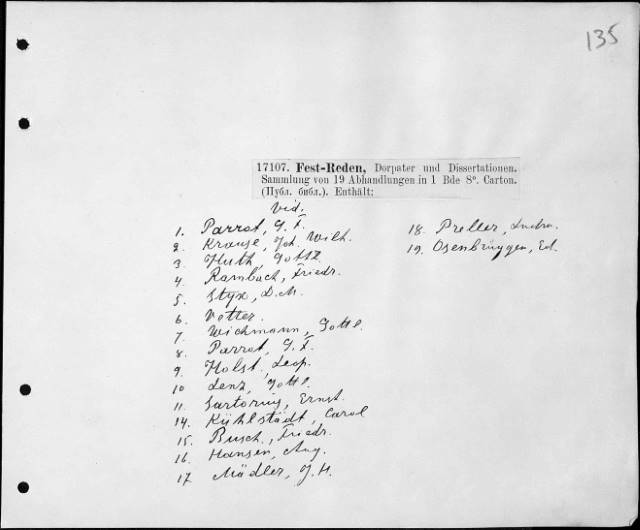 135
17107. Fest-Reden, Dorpater und Dissertationen.
Sammlung von 19 Abhandlungen in 1 Bde 8°. Carton.
(Публ. библ.). Enthält:
Vid.
1. Parrot, G. F.
2. Krause, Joh. Wilh.
3. Huth, Gottf.
4. Rambach, Friedr.
5. Styx, D. M.
6. Vetter.
7. Wichmann, Gottl.
8. Parrot, G. F.
9. Holst, Leop.
10 Lenz, Gottl.
11. Sartorius, Ernst.
14. Kühlstädt, Carol
15. Busch, Friedr.
16. Hansen, Aug.
17 Mädler, J. H.
18. Preller, Ludw.
19. Osenbrüggen, Ed.